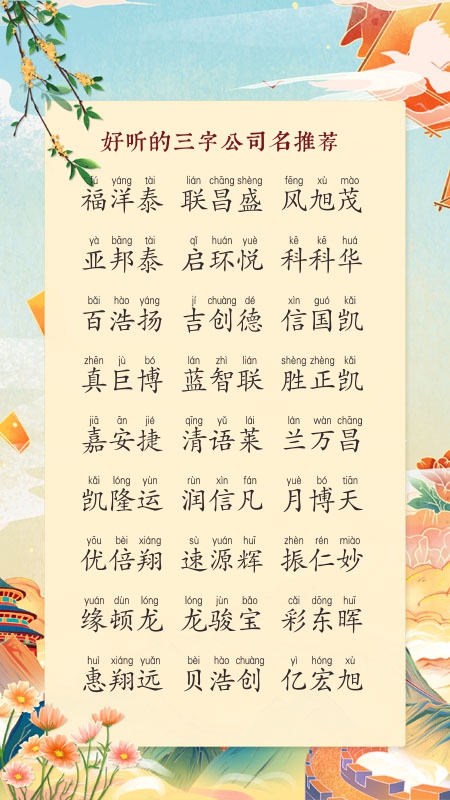 好听的三字公司名推荐
fú yáng tài lián chāng shèng fēng xù mào
福洋泰 联昌盛 风旭茂
yà bāng tài qǐ huán yuè kē kē huá
亚邦泰 启环悦 科科华
bǎi hào yáng jí chuàng dé xìn guó kǎi
百浩扬 吉创德 信国凯
zhēn jù bó lán zhì lián shèng zhèng kǎi
真巨博 蓝智联 胜正凯
jiā ān jié qīng yǔ lái lán wàn chāng
嘉安捷 清语莱 兰万昌
kǎi lóng yùn rùn xìn fān yuè bó tiān
凯隆运 润信凡 月博天
yōu bèi xiáng sù yuán huī zhèn rén miào
优倍翔 速源辉 振仁妙
yuán dùn lóng lóng jùn bǎo cǎi dōng huī
缘顿龙 龙骏宝 彩东晖
huì xiáng yuǎn bèi hào chuàng yì hóng xù
惠翔远 贝浩创 亿宏旭